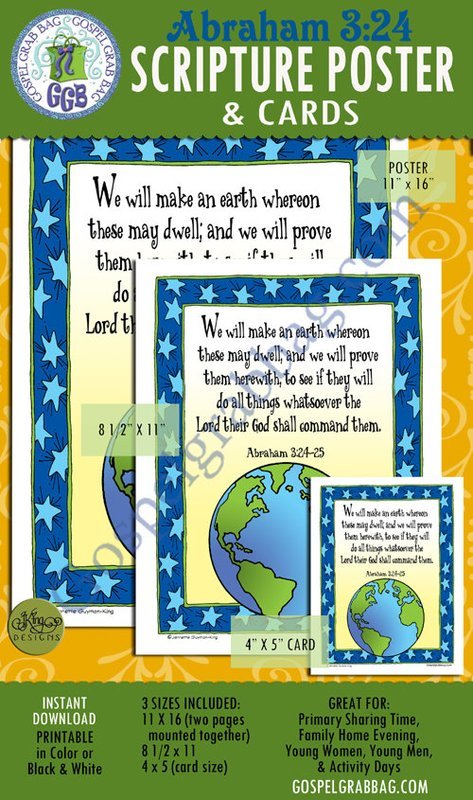 GOSPEL GRAB BAG
GOSPEL GRAB BAG
GGB
Abraham 3:24
SCRIPTURE POSTER
& CARDS
POSTER
11" x 16"
We will make an earth whereon
these may dwell; and we will prove
them herewith, to see if they will
do a
Lord th
8 1/2" X 11"
We will make an earth whereon
these may dwell; and we will prove
them herewith, to see if they will
do all things whatsoever the
Lord their God shall command them.
Abraham 3:24-25
We will make an earth whereon
these may dwell; and we will prove
them herewith, to see if they will
do all things whatsoever the
Lord their God shall command them.
Abraham 3:24-25
4" X 5" CARD
©Jennette Guymon-King
King
DESIGNS
gospelgrabbag.com
INSTANT
DOWNLOAD
PRINTABLE
in Color or
Black & White
3 SIZES INCLUDED:
11 X 16 (two pages
mounted together)
8 1/2 x 11
4 x 5 (card size)
GREAT FOR:
Primary Sharing Time,
Family Home Evening,
Young Women, Young Men,
& Activity Days
GOSPELGRABBAG.COM